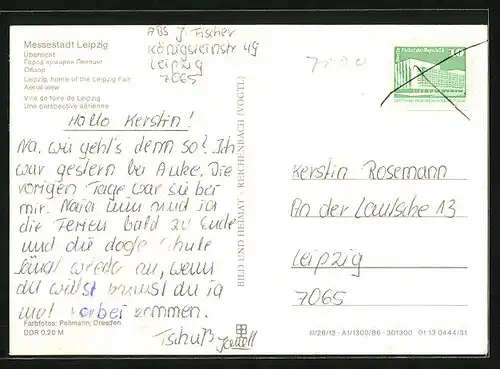 Messestadt Leipzig
Übersicht
Город ярмарки Лейпциг
Обзор
Leipzig, home of the Leipzig Fair
Aerial view
Ville de foire de Leipzig
Une perspective aérienne
ABS J. Fischer
Königsteinstr 49
Leipzig
7065
10
Hallo Kerstin!
Na, wie geht's denn so? Ich
war gestern bei Anke. Die
vorigen Tage war sie bei
mir. Naja nun sind ja
die Ferien bald zu Ende
und die doofe Schule
fängt wieder an, wenn
du willst kannst du ja
mal vorbei kommen.
Tschüß
Farbfotos: Pellmann, Dresden
DDR 0,20 M
BILD UND HEIMAT · REICHENBACH (VOGTL)
Kerstin Rosemann
An der Lautsche 13
Leipzig
7065
III/26/13 · A1/1300/86 · 301300 01 13 0444/31